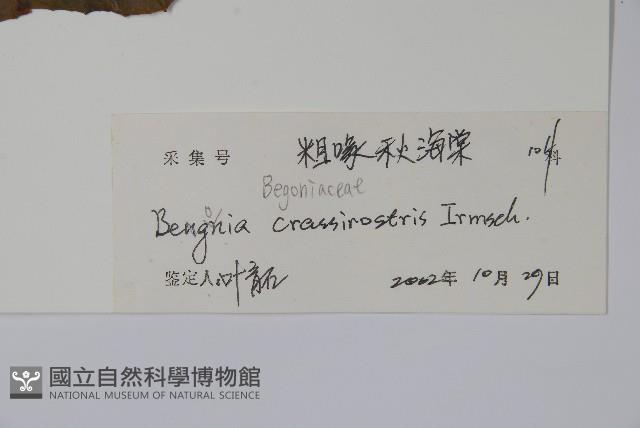 采集号 粗喙秋海棠 科
Begoniaceae
Begnia crassirostris Irmsch.
鉴定人: 叶育石 2002年 10月 29日
國立自然科學博物館
NATIONAL MUSEUM OF NATURAL SCIENCE